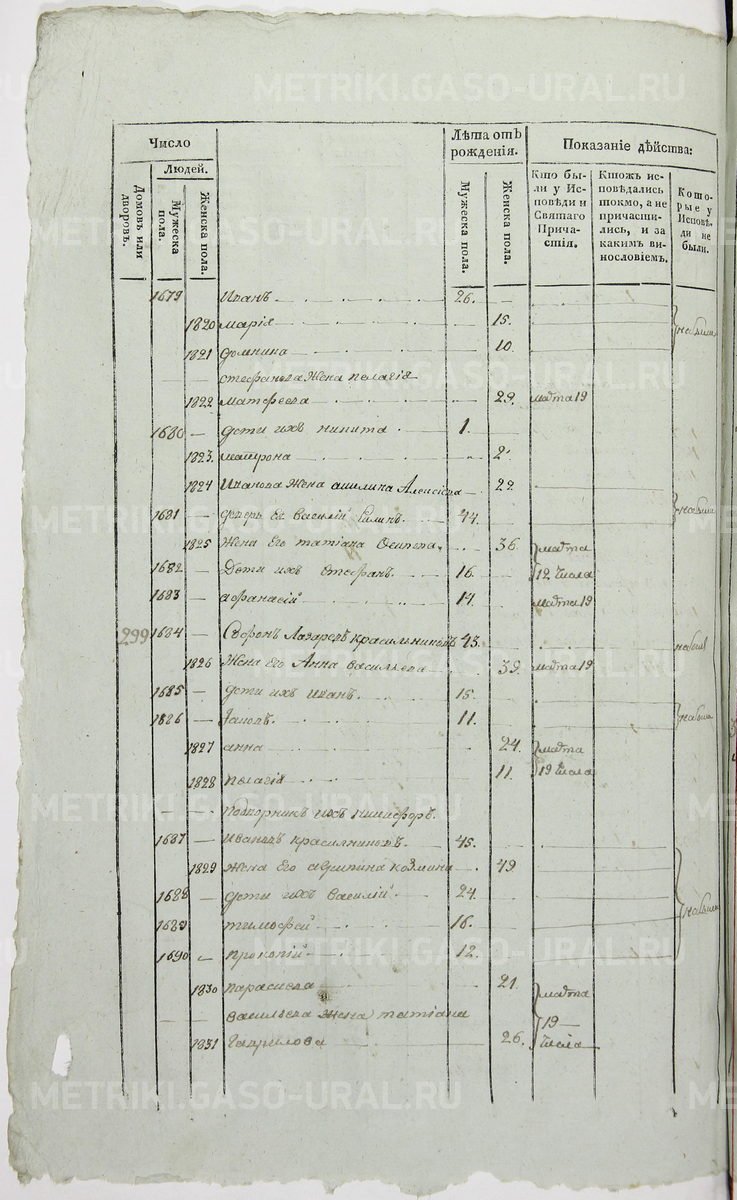 METRIKI.GASO-URAL.RU
Число
Лѣта отъ рожденія.
Показаніе дѣйства:
Людей.
Домовъ или дворовъ.
Мужеска пола.
Женска пола.
Мужеска пола.
Женска пола.
Кто были у Исповѣди и Святаго Причастія.
Ктожъ исповѣдались токмо, а не причастились, и за какимъ винословіемъ.
Которые у Исповѣди не были.
1679 Иванъ 26.
1820 марія 15.
1821 домнина 10.
стефанова жена пелагія
1822 матфеева 29. марта 19
1680 дети ихъ никита 1.
1823. матрона 2.
1824 Иванова жена Алексіева 22.
1681 василій 44.
1825 жена Его татіана Осипова 36. марта
1682 Дети ихъ Стефанъ 16. 19 числа
1683 афанасій 14. марта 19
299 1684 Лазаревъ красильниковъ 43.
1826 жена Его Анна васильева 39. марта 19
1685 дети ихъ Иванъ 15.
1826 11.
1827 анна 24. марта
1828 пелагія 11. 19 числа
Подворникъ ихъ никифоръ
1687 Ивановъ красилниковъ 45.
1829 жена Его козмина 49
1688 дети ихъ василій 24.
1689 тимофей 16.
1690 прокопій 12.
1830 параскева 21. марта
васильева жена татіана 19
1831 Гаврилова 26. числа